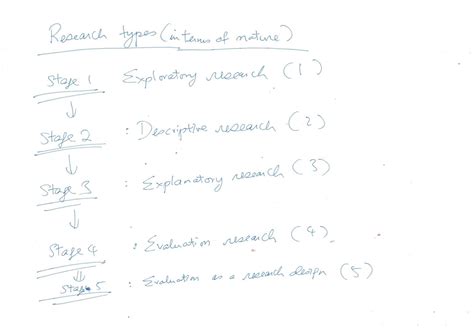 Research types (in terms of nature)
Stage 1 Exploratory research (1)
↓
Stage 2 : Descriptive research (2)
↓
Stage 3 : Explanatory research (3)
↓
Stage 4 : Evaluation research (4)
⇓
Stage 5 : Evaluation as a research design (5)